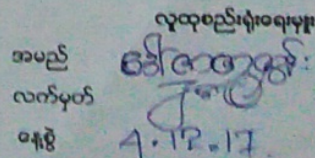 လူထုစည်းရုံးရေးမှူး
အမည် ဒေါ်
လက်မှတ်
နေ့စွဲ 4.12.17